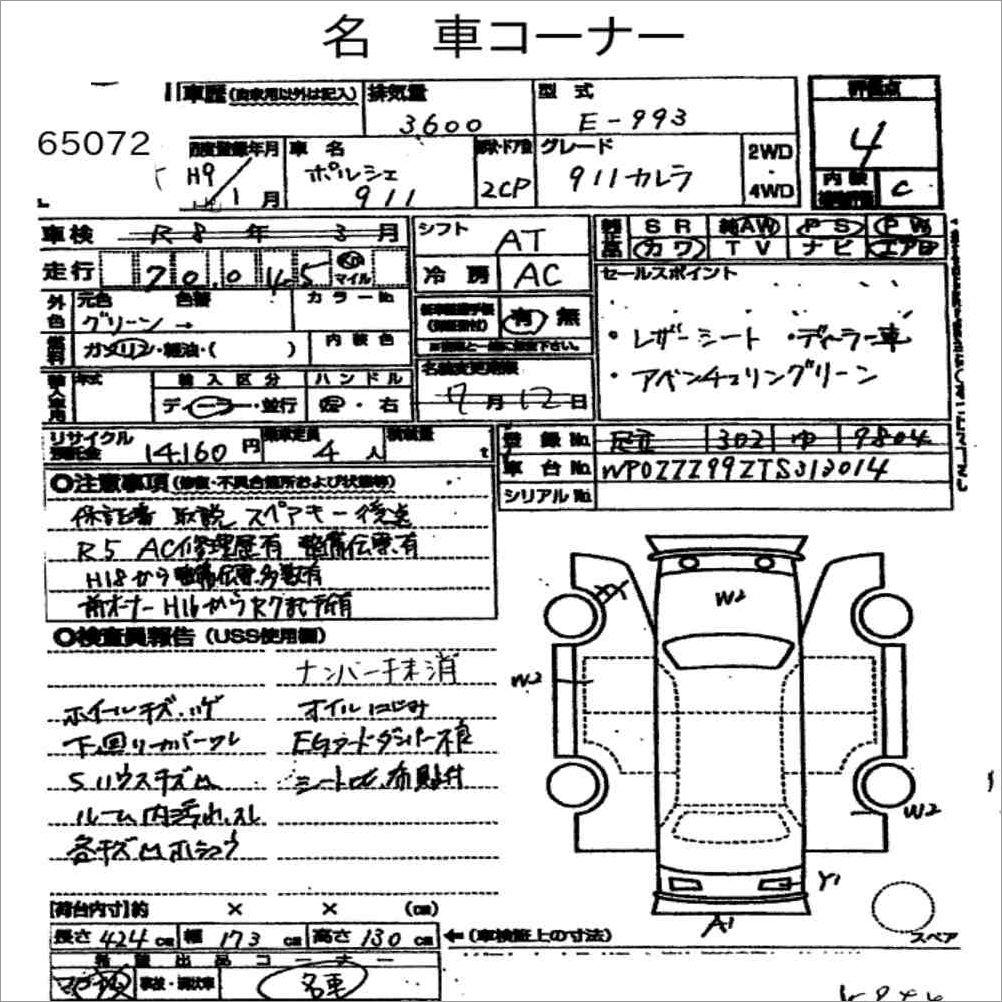 名 車コーナー
車歴 (自家用以外は記入) 排気量 3600 型式 E-993 評価点 4
65072
H9 1月 車名 ポルシェ 911 形状・ドア数 2CP グレード 911カレラ 2WD ・ 4WD 内装 C
車検 R8年 3月 シフト AT SR 純AW PS PW
カワ TV ナビ エアB
走行 70,045 km マイル 冷房 AC セールスポイント
外色 元色 グリーン 色替 → カラーNo 有・無
・レザーシート ・ディーラー車
・アベンチュリングリーン
燃料 ガソリン・軽油・( ) 内装色
名義変更期限 7月12日
年式 輸入区分 ディーラー・並行 ハンドル 左・右
リサイクル預託金 14160円 乗車定員 4人 積載量 t
登録No. 足立 302 ゆ 9804
車台No. WP0ZZZ99ZTS312014
シリアルNo.
○注意事項 (修復・不具合箇所および状態等)
保証書 取説 スペアキー 後送
R5 AC修理歴有 整備伝票有
H18から整備伝票多数有
前オーナーH16からR7まで所有
○検査員報告 (USS使用欄)
ナンバー未抹消
ホイールキズ、ハゲ オイルにじみ
下回りカバーワレ EGフードダンパー不良
Sハウスキズ凹
ルーム内汚れ、スレ
各キズ凹ホシュウ
W2
W2
W2
Y1
A1
スペア
[荷台内寸]約 × × (cm)
長さ 424cm 幅 173cm 高さ 130cm ←(車検証上の寸法)
希望出品コーナー
事故・現状車 名車